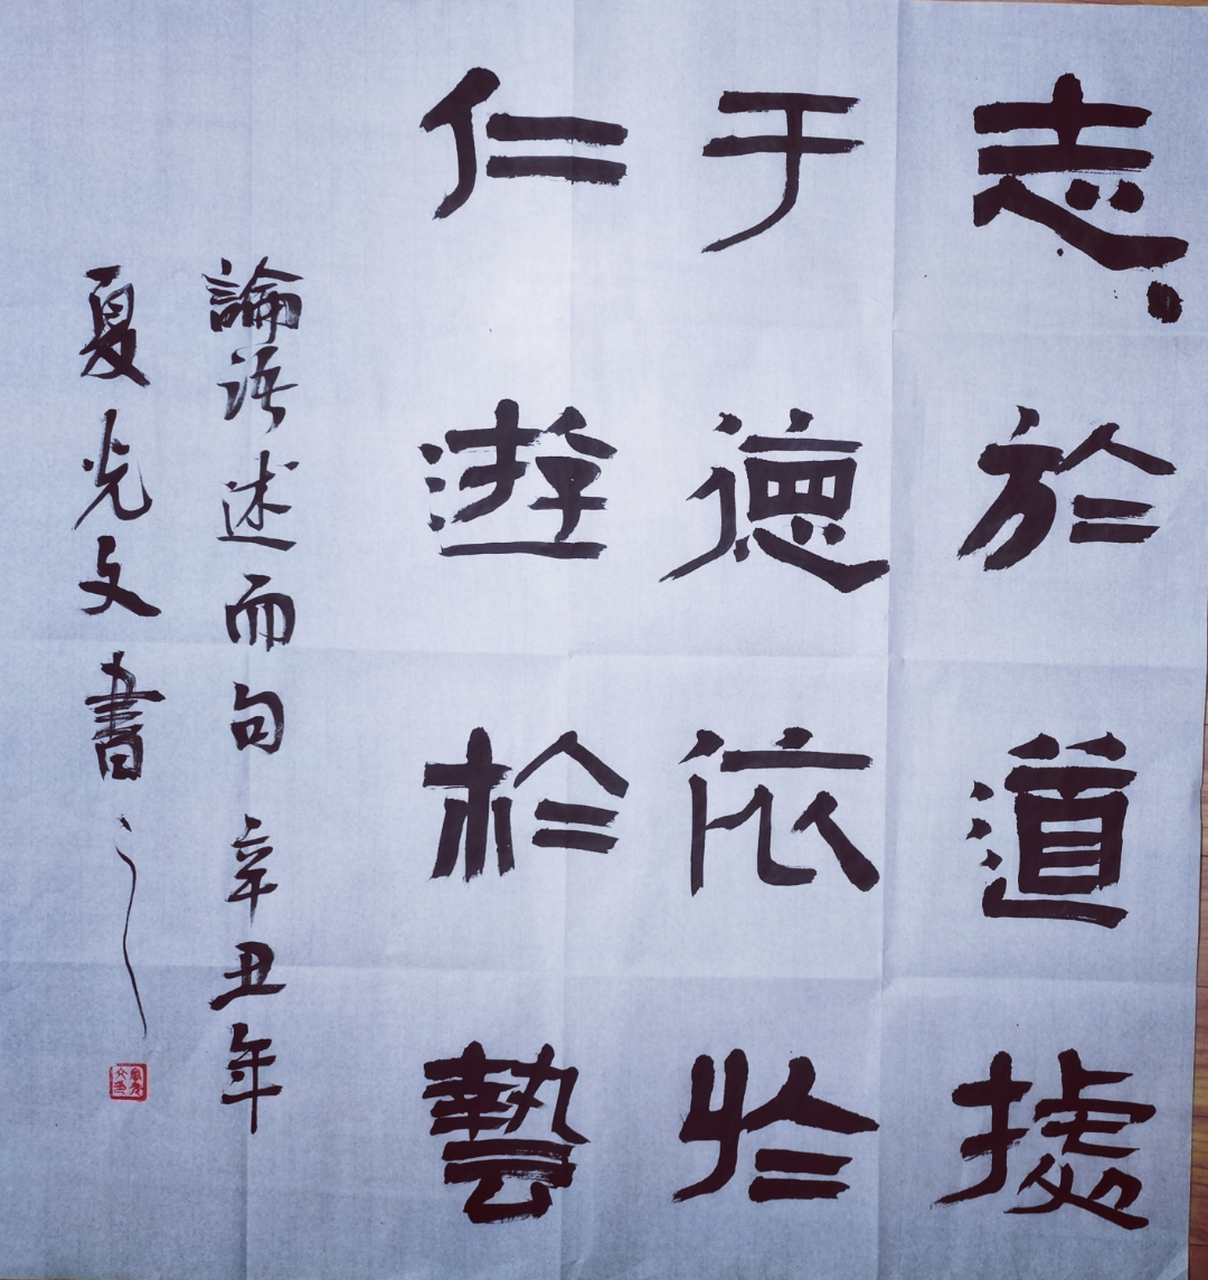 志於道據
于德依於
仁遊於藝
論语述而句辛丑年
夏光文書